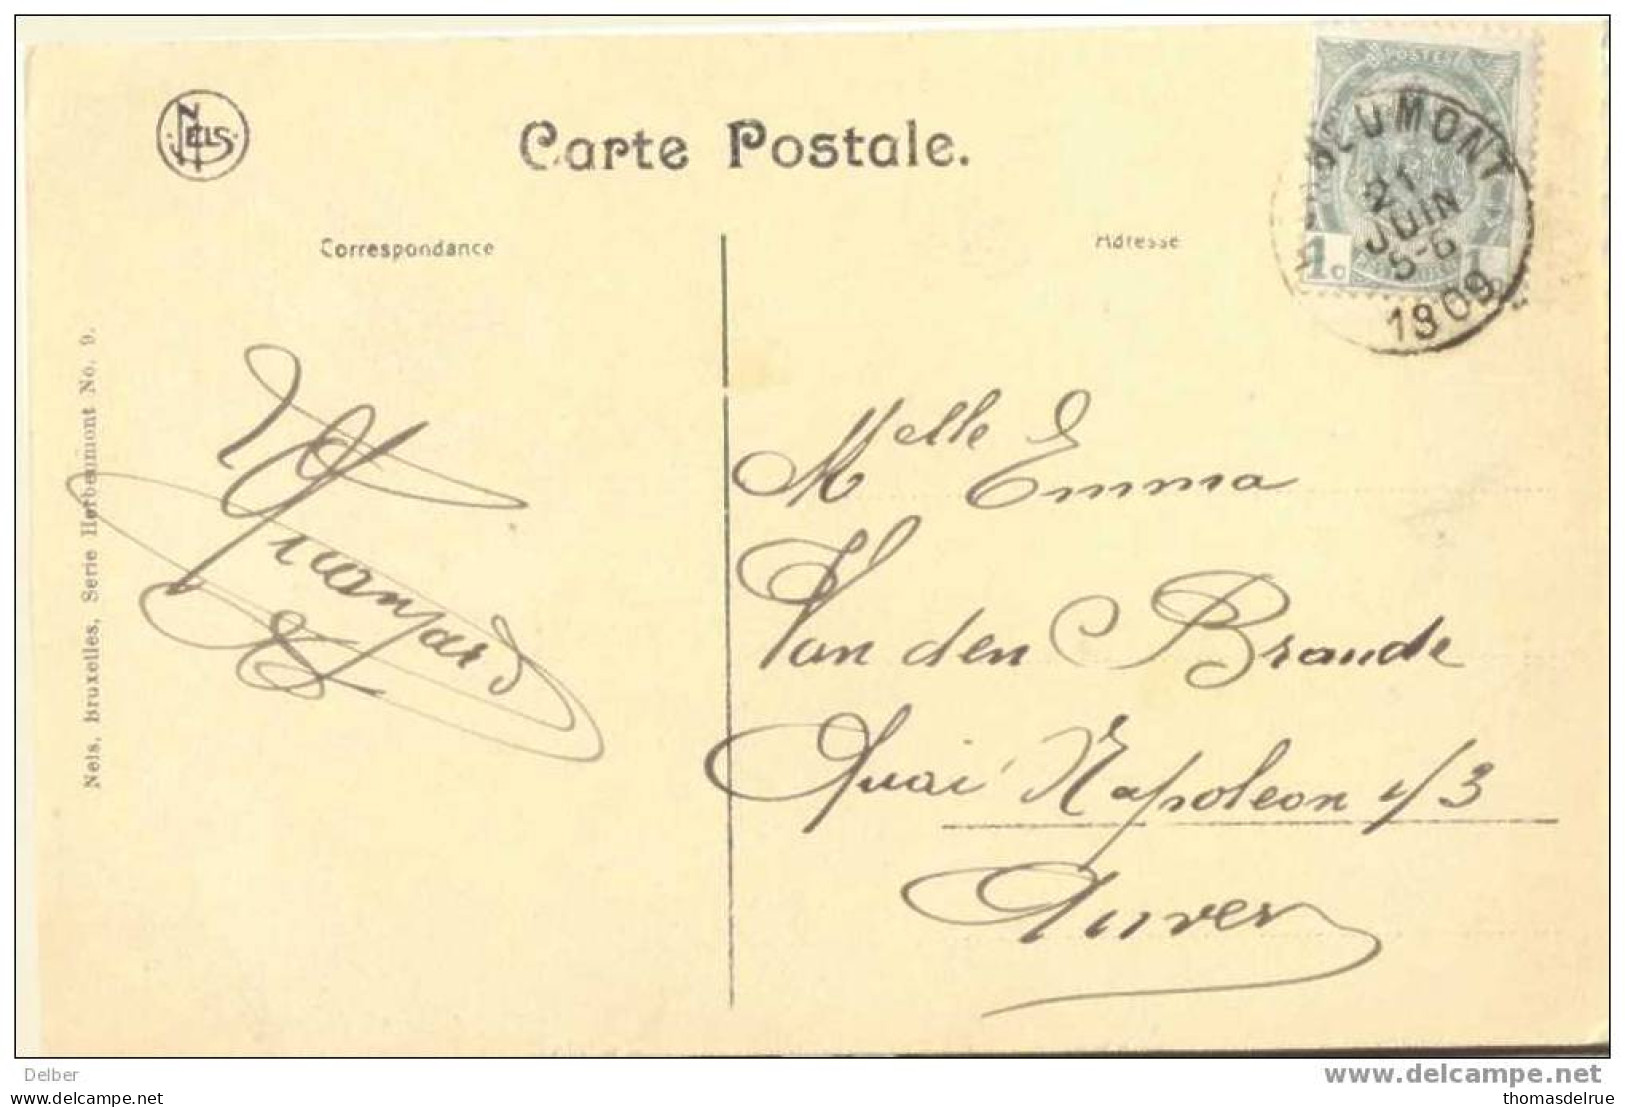 NELS
Carte Postale.
Correspondance
Adresse
POSTES
1c
1
21
JUIN
5-6
1909
Nels, Bruxelles, Serie Herbeumont No. 9.
Melle Emma
Van den Brande
Quai Napoleon 43
Anvers
Delber
www.delcampe.net
thomasdelrue